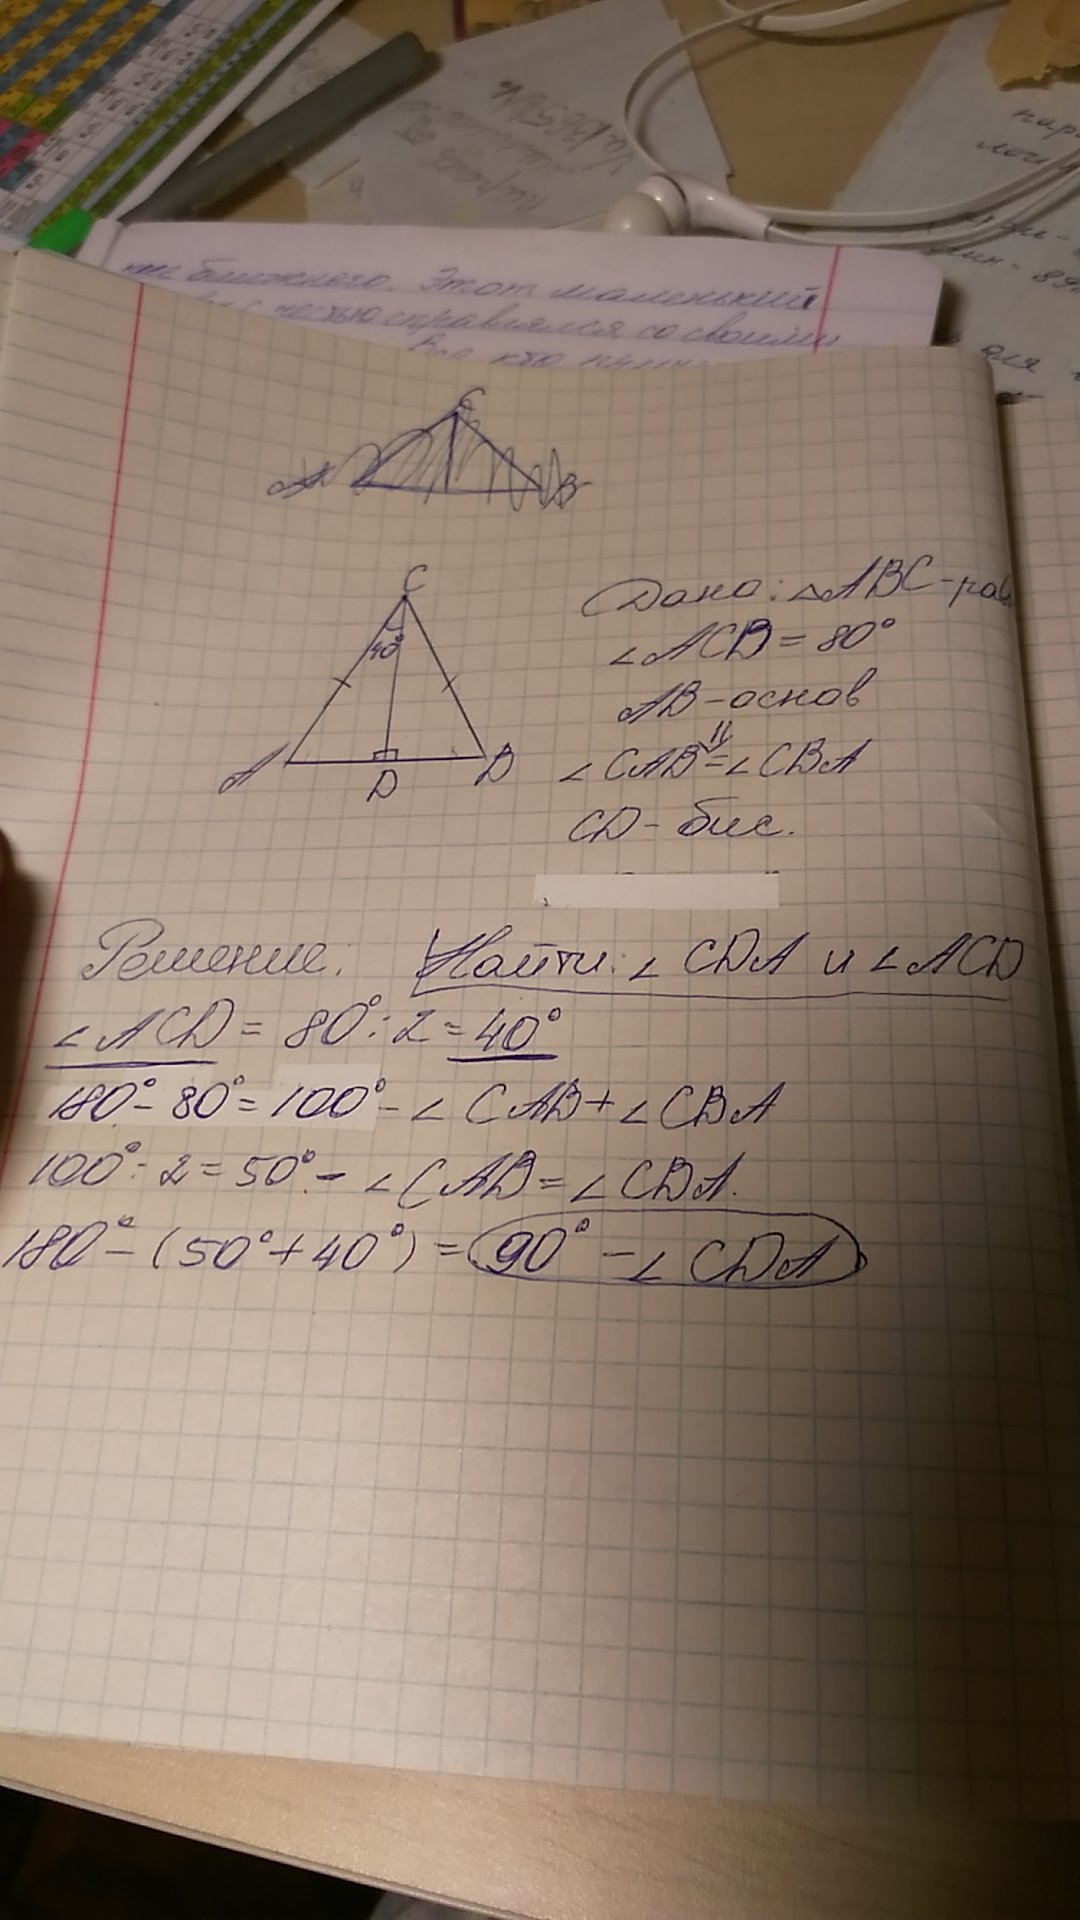 ближнего. Этот маленький
честью справлялся со своими
Все кто
C
A B
C
40°
A D B
Дано: △ABC - рав
∠ACB = 80°
AB - основ
⇓
∠CAB = ∠CBA
CD - бис.
Решение: Найти: ∠CDA и ∠ACD
∠ACD = 80° : 2 = 40°
180° - 80° = 100° - ∠CAB + ∠CBA
100° : 2 = 50° - ∠CAB = ∠CBA.
180° - (50° + 40°) = 90° - ∠CDA